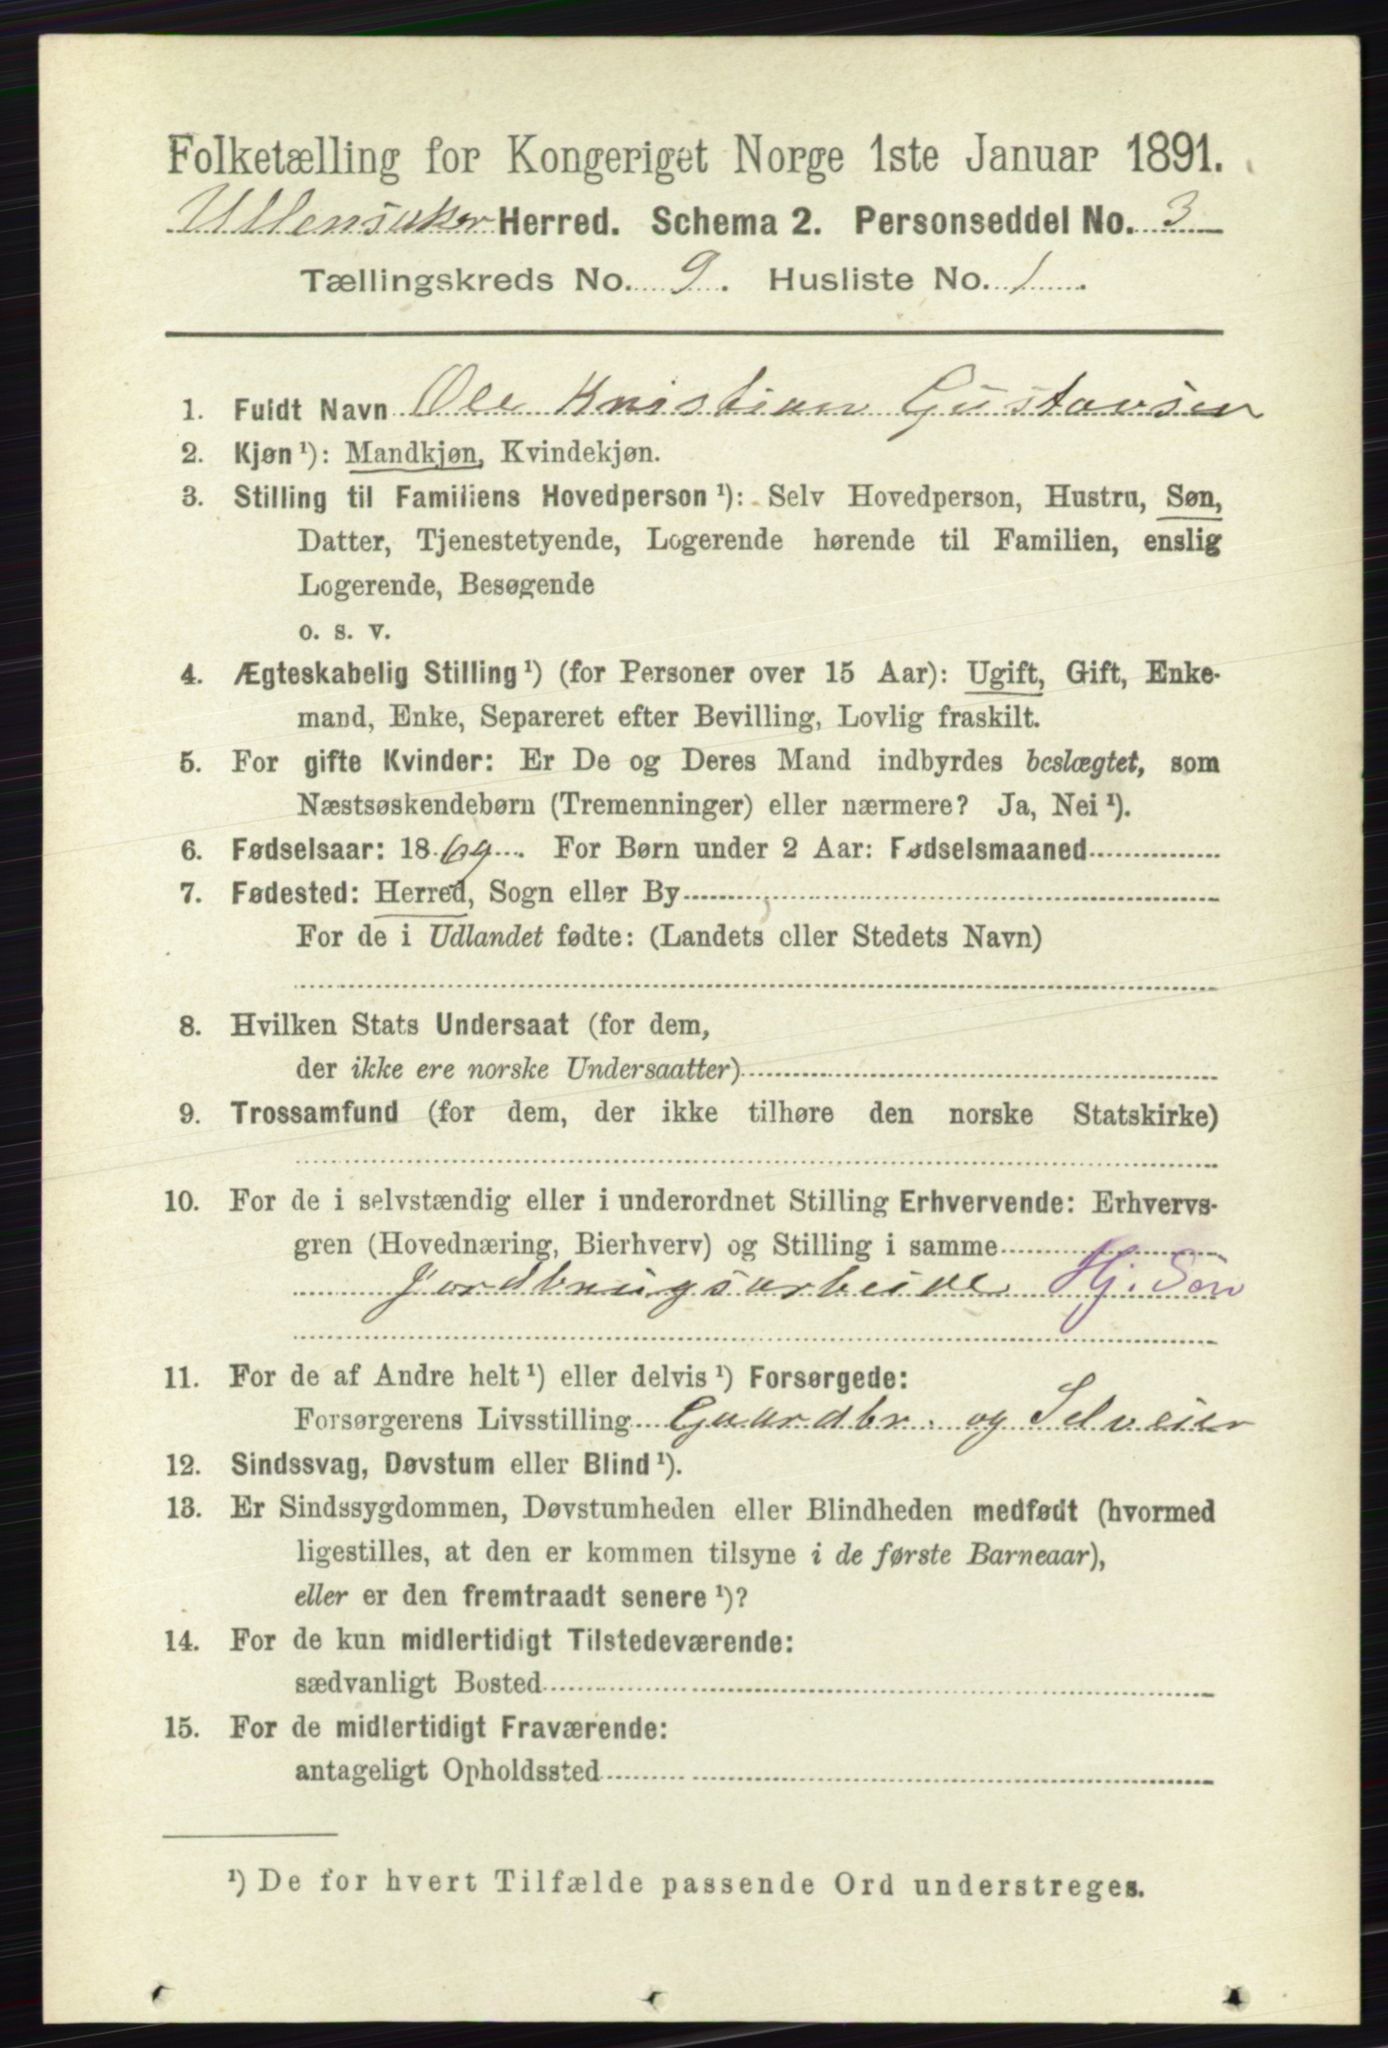 Folketælling for Kongeriget Norge 1ste Januar 1891.
Ullensaker Herred. Schema 2. Personseddel No. 3
Tællingskreds No. 9. Husliste No. 1.
1. Fuldt Navn Ole Kristian Gustavsen
2. Kjøn ¹): Mandkjøn, Kvindekjøn.
3. Stilling til Familiens Hovedperson ¹): Selv Hovedperson, Hustru, Søn,
Datter, Tjenestetyende, Logerende hørende til Familien, enslig
Logerende, Besøgende
o. s. v.
4. Ægteskabelig Stilling ¹) (for Personer over 15 Aar): Ugift, Gift, Enke-
mand, Enke, Separeret efter Bevilling, Lovlig fraskilt.
5. For gifte Kvinder: Er De og Deres Mand indbyrdes beslægtet, som
Næstsøskendebørn (Tremenninger) eller nærmere? Ja, Nei ¹).
6. Fødselsaar: 1869. For Børn under 2 Aar: Fødselsmaaned
7. Fødested: Herred, Sogn eller By
For de i Udlandet fødte: (Landets eller Stedets Navn)
8. Hvilken Stats Undersaat (for dem,
der ikke ere norske Undersaatter)
9. Trossamfund (for dem, der ikke tilhøre den norske Statskirke)
10. For de i selvstændig eller i underordnet Stilling Erhvervende: Erhvervs-
gren (Hovednæring, Bierhverv) og Stilling i samme
Jordbrugsarbeide Hj. Søn
11. For de af Andre helt ¹) eller delvis ¹) Forsørgede:
Forsørgerens Livsstilling Gaardbr. og Selveier
12. Sindssvag, Døvstum eller Blind ¹).
13. Er Sindssygdommen, Døvstumheden eller Blindheden medfødt (hvormed
ligestilles, at den er kommen tilsyne i de første Barneaar),
eller er den fremtraadt senere ¹)?
14. For de kun midlertidigt Tilstedeværende:
sædvanligt Bosted
15. For de midlertidigt Fraværende:
antageligt Opholdssted
¹) De for hvert Tilfælde passende Ord understreges.